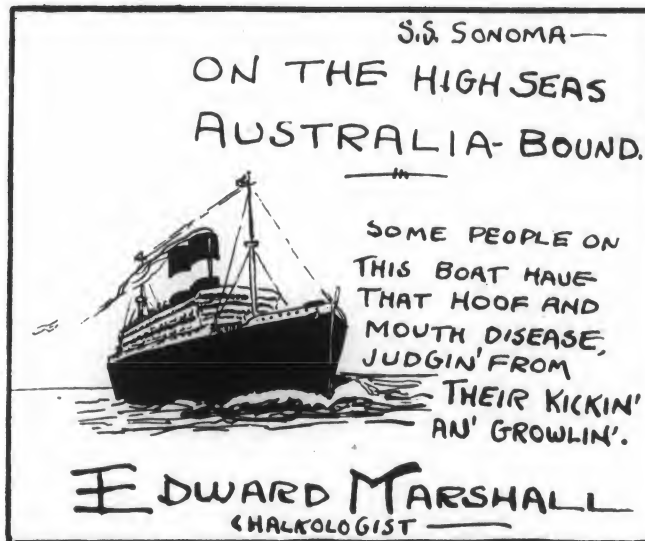 S.S. SONOMA—
ON THE HIGH SEAS
AUSTRALIA-BOUND.
SOME PEOPLE ON
THIS BOAT HAVE
THAT HOOF AND
MOUTH DISEASE,
JUDGIN' FROM
THEIR KICKIN'
AN' GROWLIN'.
EDWARD MARSHALL
CHALKOLOGIST